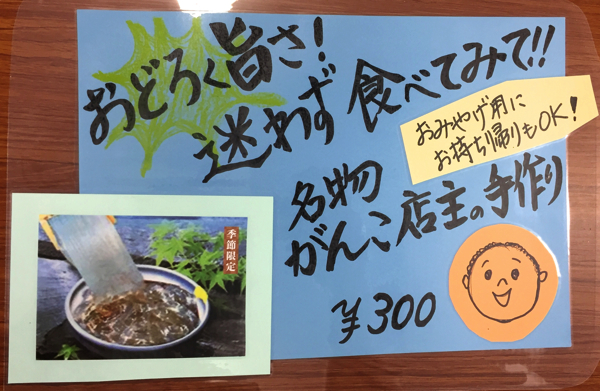 おどろく旨さ!
迷わず食べてみて!!
おみやげ用に
お持ち帰りもOK!
名物
がんこ店主の手作り
¥300
季節限定